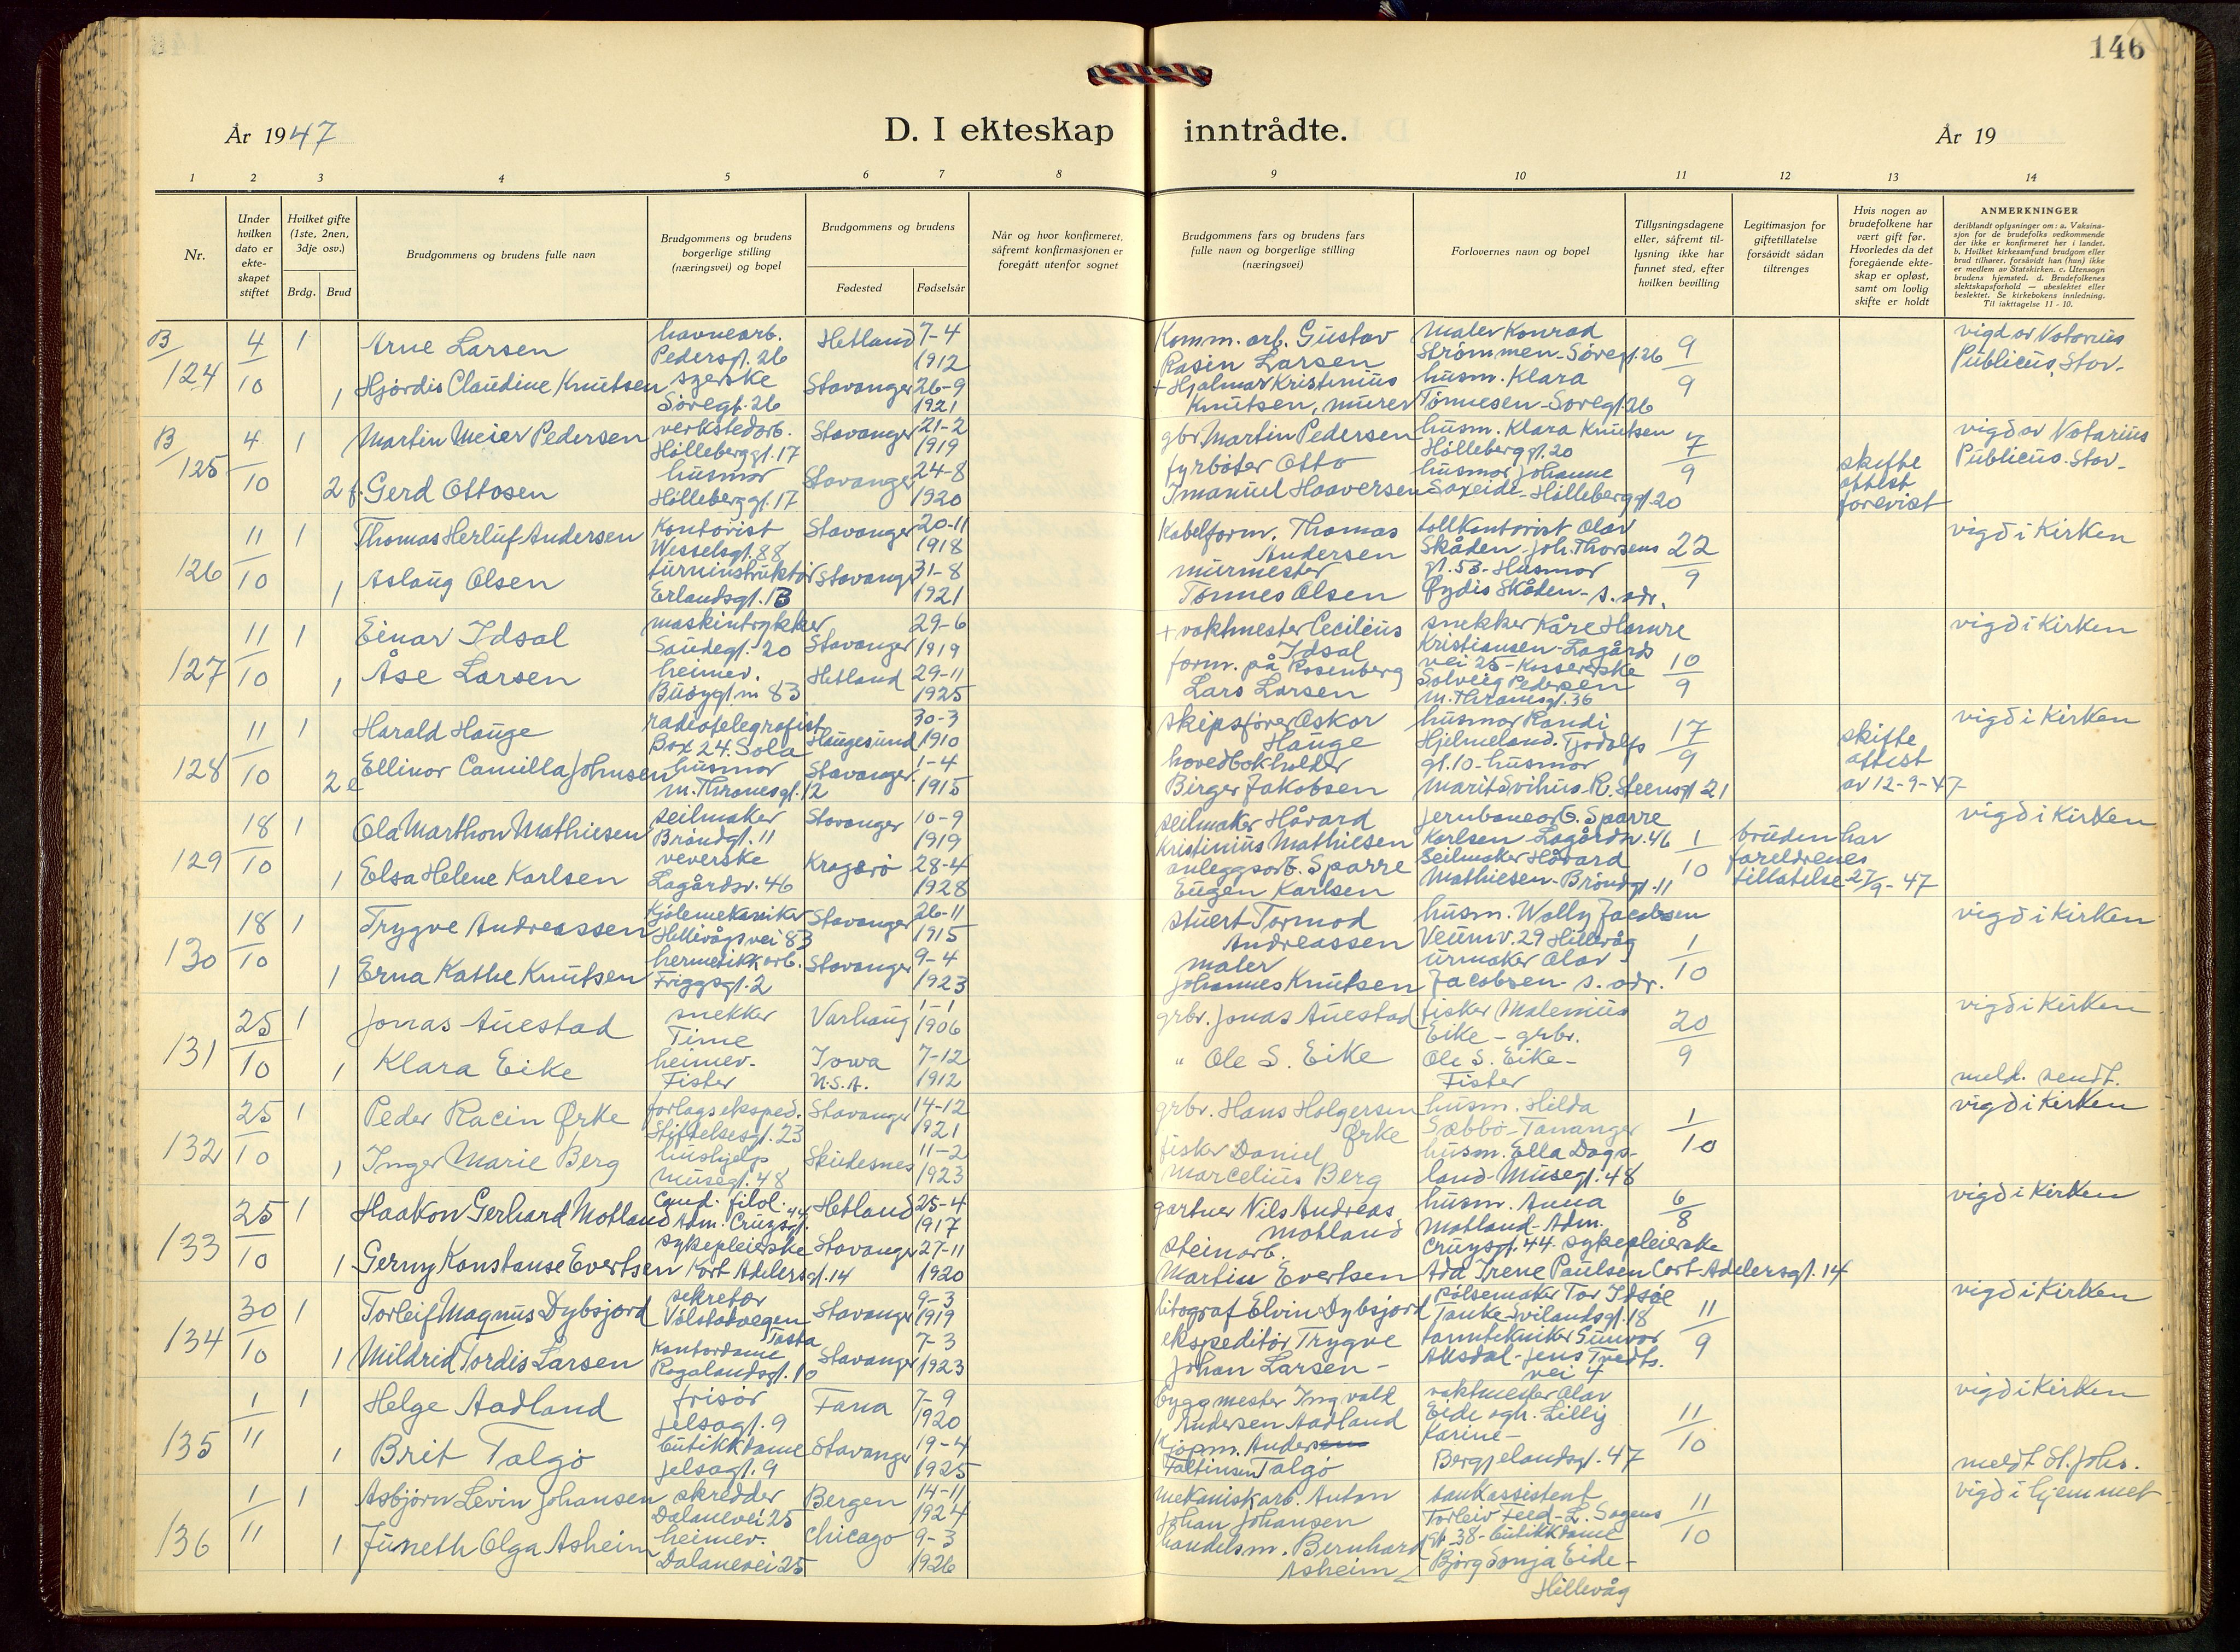 146
År 1947
D. I ekteskap inntrådte.
År 19
1 2 3 4 5 6 7 8 9 10 11 12 13 14
Nr.
Under hvilken dato er ekte-skapet stiftet
Hvilket gifte (1ste, 2nen, 3dje osv.)
Brdg. Brud
Brudgommens og brudens fulle navn
Brudgommens og brudens borgerlige stilling (næringsvei) og bopel
Brudgommens og brudens
Fødested Fødselsår
Når og hvor konfirmeret, såfremt konfirmasjonen er foregått utenfor sognet
Brudgommens fars og brudens fars fulle navn og borgerlige stilling (næringsvei)
Forlovernes navn og bopel
Tillysningsdagene eller, såfremt til-lysning ikke har funnet sted, efter hvilken bevilling
Legitimasjon for giftetillatelse forsåvidt sådan tiltrenges
Hvis nogen av brudefolkene har vært gift før. Hvorledes da det foregående ekte-skap er opløst, samt om lovlig skifte er holdt
ANMERKNINGER
deriblandt oplysninger om: a. Vaksina-sjon for de brudefolks vedkommende der ikke er konfirmeret her i landet. b. Hvilket kirkesamfund brudgom eller brud tilhører, forsåvidt han (hun) ikke er medlem av Statskirken. c. Utensogn brudens hjemsted. d. Brudefolkenes slektskapsforhold — ubeslektet eller beslektet. Se kirkebokens innledning. Til iakttagelse 11 - 10.
B 124 4/10 1 Arne Larsen havnearb. Pedersgt. 26 Hetland 7-4 1912 Komm. arb. Gustav Rasin Larsen Maler Konrad Strömmen - Söregt. 26 9/9 vigd av Notarius Publicus, Stav.
1 Hjördis Claudine Knutsen syerske Söregt. 26 Stavanger 26-9 1921 + Hjalmar Kristinius Knutsen, murer husm. Klara Tönnesen - Söregt. 26
B 125 4/10 1 Martin Meier Pedersen verkstedarb. Hölleberggt. 17 Stavanger 21-2 1919 gbr. Martin Pedersen husm. Klara Knutsen Hölleberggt. 20 7/9 skifte attest forevist vigd av Notarius Publicus. Stav.
2 f. Gerd Ottosen husmor Hölleberggt. 17 Stavanger 24-8 1920 fyrböter Otto Imanuel Haaversen husmor Johanne Saxeide - Hölleberggt 20
126 11/10 1 Thomas Herluf Andersen Kontorist Wesselsgt. 88 Stavanger 20-11 1918 Kabelform. Thomas Andersen tollkontorist Olav Skåden - Joh. Thorsens gt. 53 - Husmor 22/9 vigd i Kirken
1 Aslaug Olsen turninstruktör Erlandsgt. 13 Stavanger 31-8 1921 murmester Tönnes Olsen Öydis Skåden - s. adr.
127 11/10 1 Einar Idsal maskintrykker Saudegt. 20 Stavanger 29-6 1919 + vaktmester Cecilius Idsal snekker Kåre Hamre Kristiansen - Lagårds vei 25 - Kassererske 10/9 vigd i Kirken
1 Åse Larsen heimev. Buöygt. 83 Hetland 29-11 1925 form. på Rosenberg Lars Larsen Solveig Pedersen M. Thranesgt. 36
128 11/10 1 Harald Hauge radiotelegrafist Box 24. Sola Haugesund 30-3 1910 skipsförer Oskar Hauge husmor Randi Hjelmeland. Tjodolfs gt. 10 - husmor 17/9 skifte attest av 12-9-47 vigd i Kirken
2 e Ellinor Camilla Johnsen husmor M. Thranesgt. 12 Stavanger 1-4 1915 hovedbokholder Birger Jakobsen Marit Svihus - R. Steensgt 21
129 18/10 1 Ola Marthon Mathiesen seilmaker Bröndgt. 11 Stavanger 10-9 1919 seilmaker Håvard Kristinius Mathiesen jernbanearb. Sparre Karlsen - Lagårdsv. 46 1/10 bruden har foreldrenes tillatelse 27/9-47 vigd i Kirken
1 Elsa Helene Karlsen veverske Lagårdsv. 46 Kragerö 28-4 1928 anleggsarb. Sparre Eugen Karlsen seilmaker Håvard Mathiesen - Bröndgt. 11
130 18/10 1 Trygve Andreassen Kjölemekaniker Hillevågsvei 83 Stavanger 26-11 1915 stuert Tormod Andreassen husm. Wally Jacobsen Veumv. 29 Hillevåg 1/10 vigd i Kirken
1 Erna Kathe Knutsen hermetikkarb. Friggsgt. 2 Stavanger 9-4 1923 maler Johannes Knutsen urmaker Olav Jacobsen - s. adr.
131 25/10 1 Jonas Auestad snekker Time Varhaug 1-1 1906 grbr. Jonas Auestad fisker Malenius Eike - grbr. 20/9 vigd i Kirken
1 Klara Eike heimev. Fister Iowa U.S.A. 7-12 1912 " Ole S. Eike Ole S. Eike - Fister meld. sendt.
132 25/10 1 Peder Racin Ørke forlagseksped. Stiftelsesgt. 23 Stavanger 14-12 1921 grbr. Hans Holgersen Ørke husm. Hilda Sæbbö - Tananger 1/10 vigd i Kirken
1 Inger Marie Berg hushjelp Musegt. 48 Skudesnes 11-2 1923 fisker Daniel Marcelius Berg husm. Ella Dagsland - Musegt. 48
133 25/10 1 Haakon Gerhard Motland Cand. filol. Adm. Cruysgt. 44 Hetland 25-4 1917 gartner Nils Andreas Motland husm. Anna Motland - Adm. Cruysgt. 44. sykepleierske 6/8 vigd i Kirken
1 Gerny Konstanse Evertsen sykepleierske Kort Adelersgt. 14 Stavanger 27-11 1920 steinarb. Martin Evertsen Ada Irene Paulsen Cort Adelersgt. 14
134 30/10 1 Torleif Magnus Dybsjord sekretær Vålstadvegen Tasta Stavanger 9-3 1919 litograf Elvin Dybsjord pölsemaker Tor Idsöe Tanke-Svilandsgt. 18 11/9 vigd i Kirken
1 Mildrid Tordis Larsen Kontordame Rogalandsgt. 10 Stavanger 7-3 1923 ekspeditör Trygve Johan Larsen - tanntekniker Gunvor Aksdal - Jens Tvedts. vei 4
135 1/11 1 Helge Aadland frisör Jelsagt. 9 Fana 7-9 1920 byggmester Ingvald Andersen Aadland vaktmester Olav Eide ogh. Lillij Karine - 11/10 vigd i Kirken
1 Brit Talgö butikkdame Jelsagt. 9 Stavanger 19-4 1925 Kjöpm. Andersen Faltinsen Talgö Bergjelandsgt. 47 meldt St. Johs.
136 1/11 1 Asbjörn Levin Johansen skredder Dalanevei 25 Bergen 14-11 1924 Mekaniskarb. Anton Johan Johansen bankassistent Torleiv Feed - L. Sagens gt. 38 - butikkdame 11/10 vigd i hjemmet
1 Juneth Olga Asheim heimev. Dalanevei 25 Chicago 9-3 1926 handelsm. Bernhard Asheim Bjørg Sonja Eide - Hillevåg